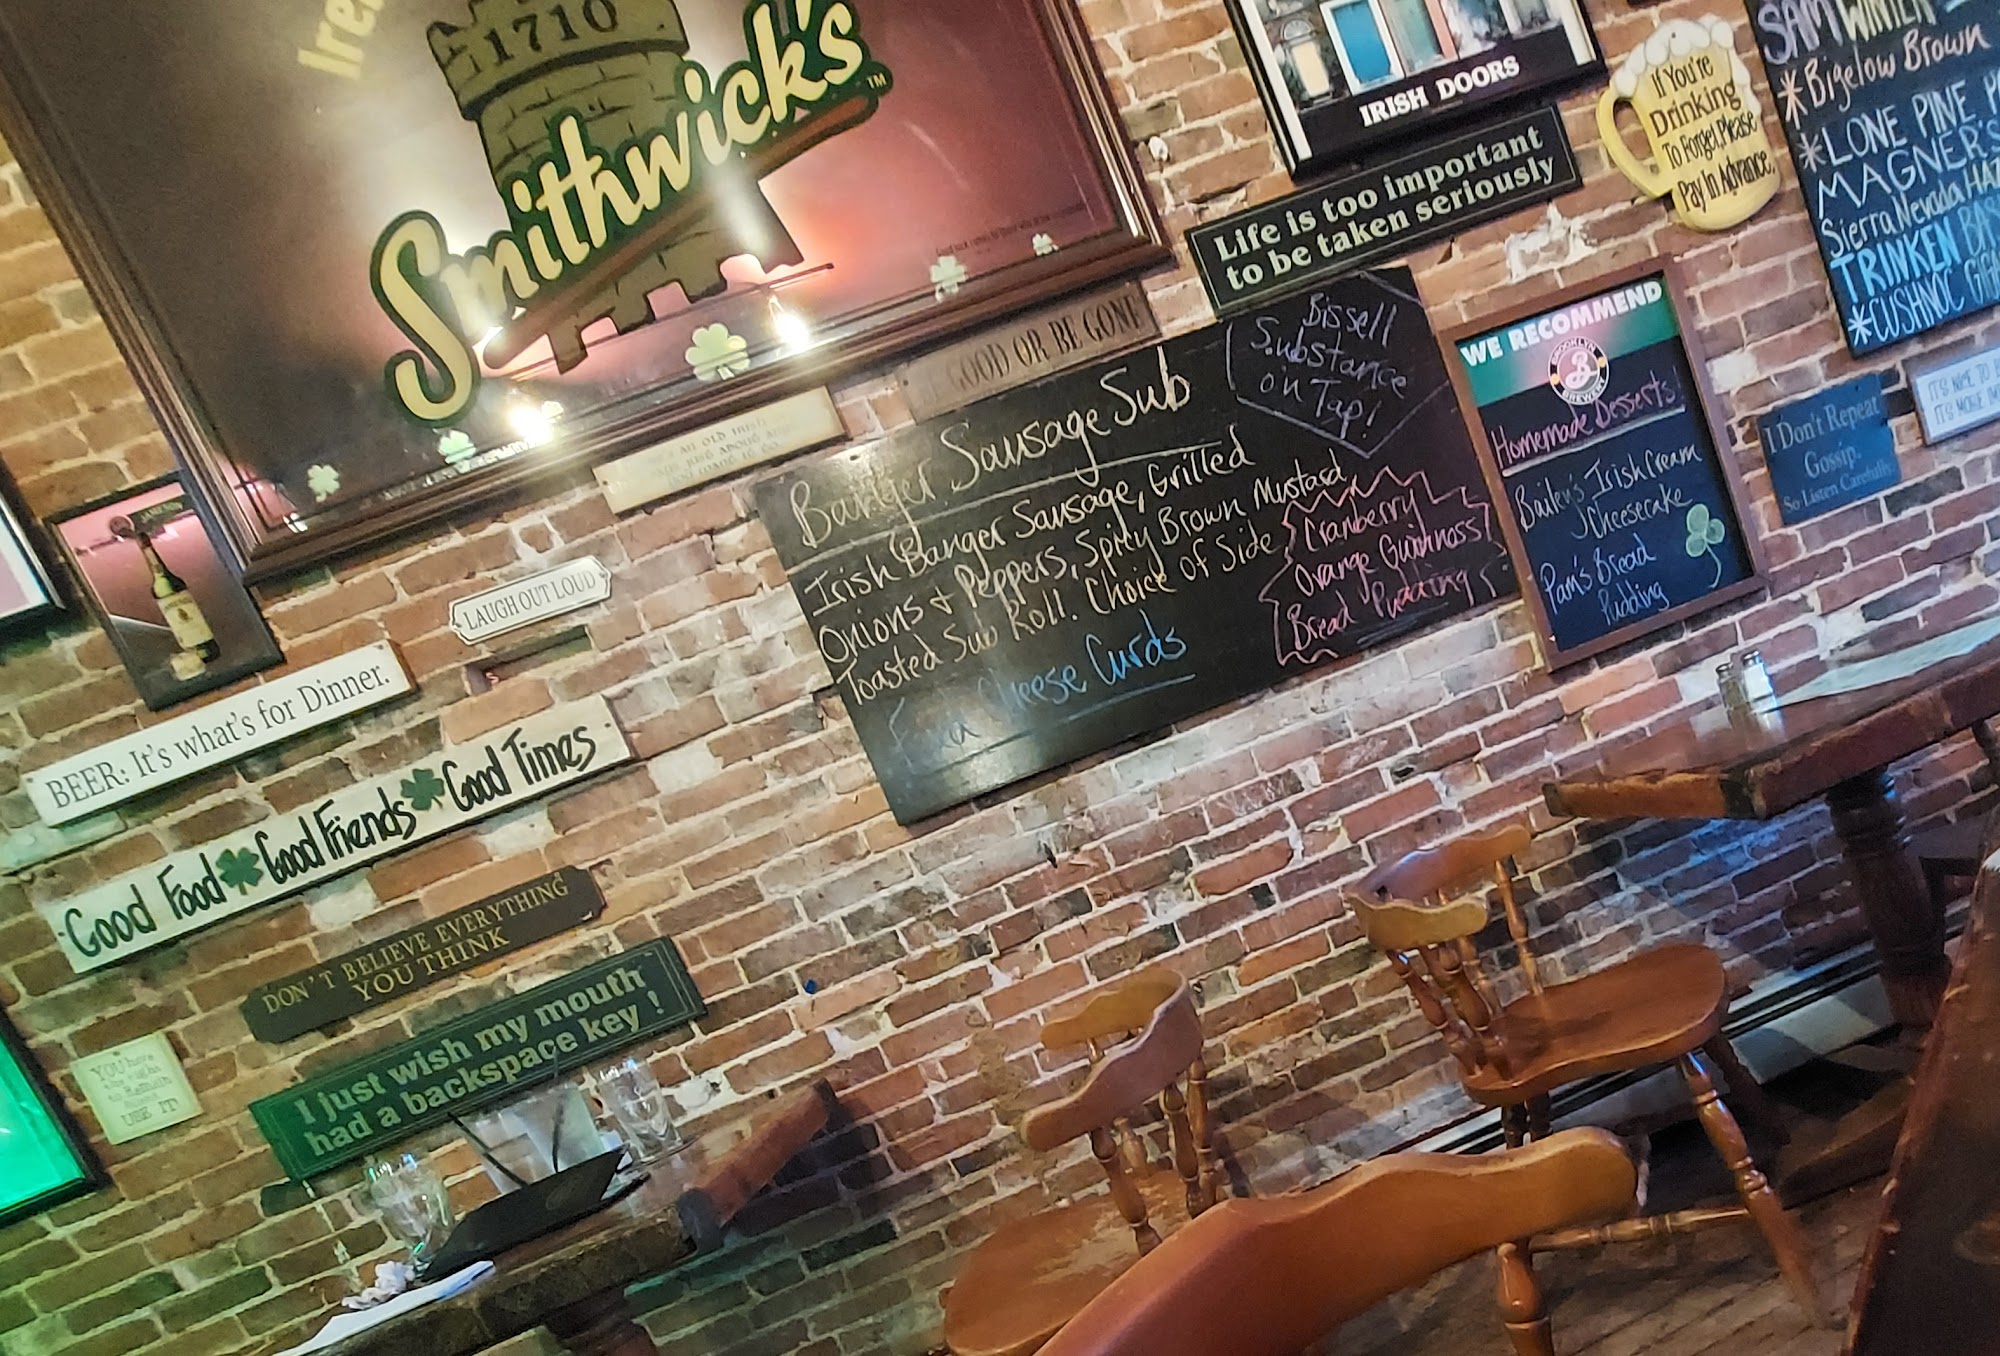 1710
Smithwick's
TM
IRISH DOORS
Life is too important
to be taken seriously
If You're
Drinking
To Forget, Please
Pay In Advance.
SAM WINTER
*Bigelow Brown
*LONE PINE
MAGNER'S
Sierra Nevada
TRINKEN
*CUSHNOC
GOOD OR BE GONE
JAMESON
LAUGH OUT LOUD
BEER: It's what's for Dinner.
Good Food Good Friends Good Times
DON'T BELIEVE EVERYTHING
YOU THINK
I just wish my mouth
had a backspace key!
YOU have
the right
to Remain
USE IT!
Banger Sausage Sub
Irish Banger Sausage, Grilled
Onions + Peppers, Spicy Brown Mustard,
Toasted Sub Roll. Choice Of Side
Cheese Curds
Bissell
Substance
on Tap!
Cranberry
Orange Guinness
Bread Pudding
WE RECOMMEND
BROOKLYN
B
BREWERY
Homemade Desserts!
Bailey's Irish Cream
Cheesecake
Pam's Bread
Pudding
I Don't Repeat
Gossip.
So Listen Carefully.
IT'S NICE TO
IT'S MORE